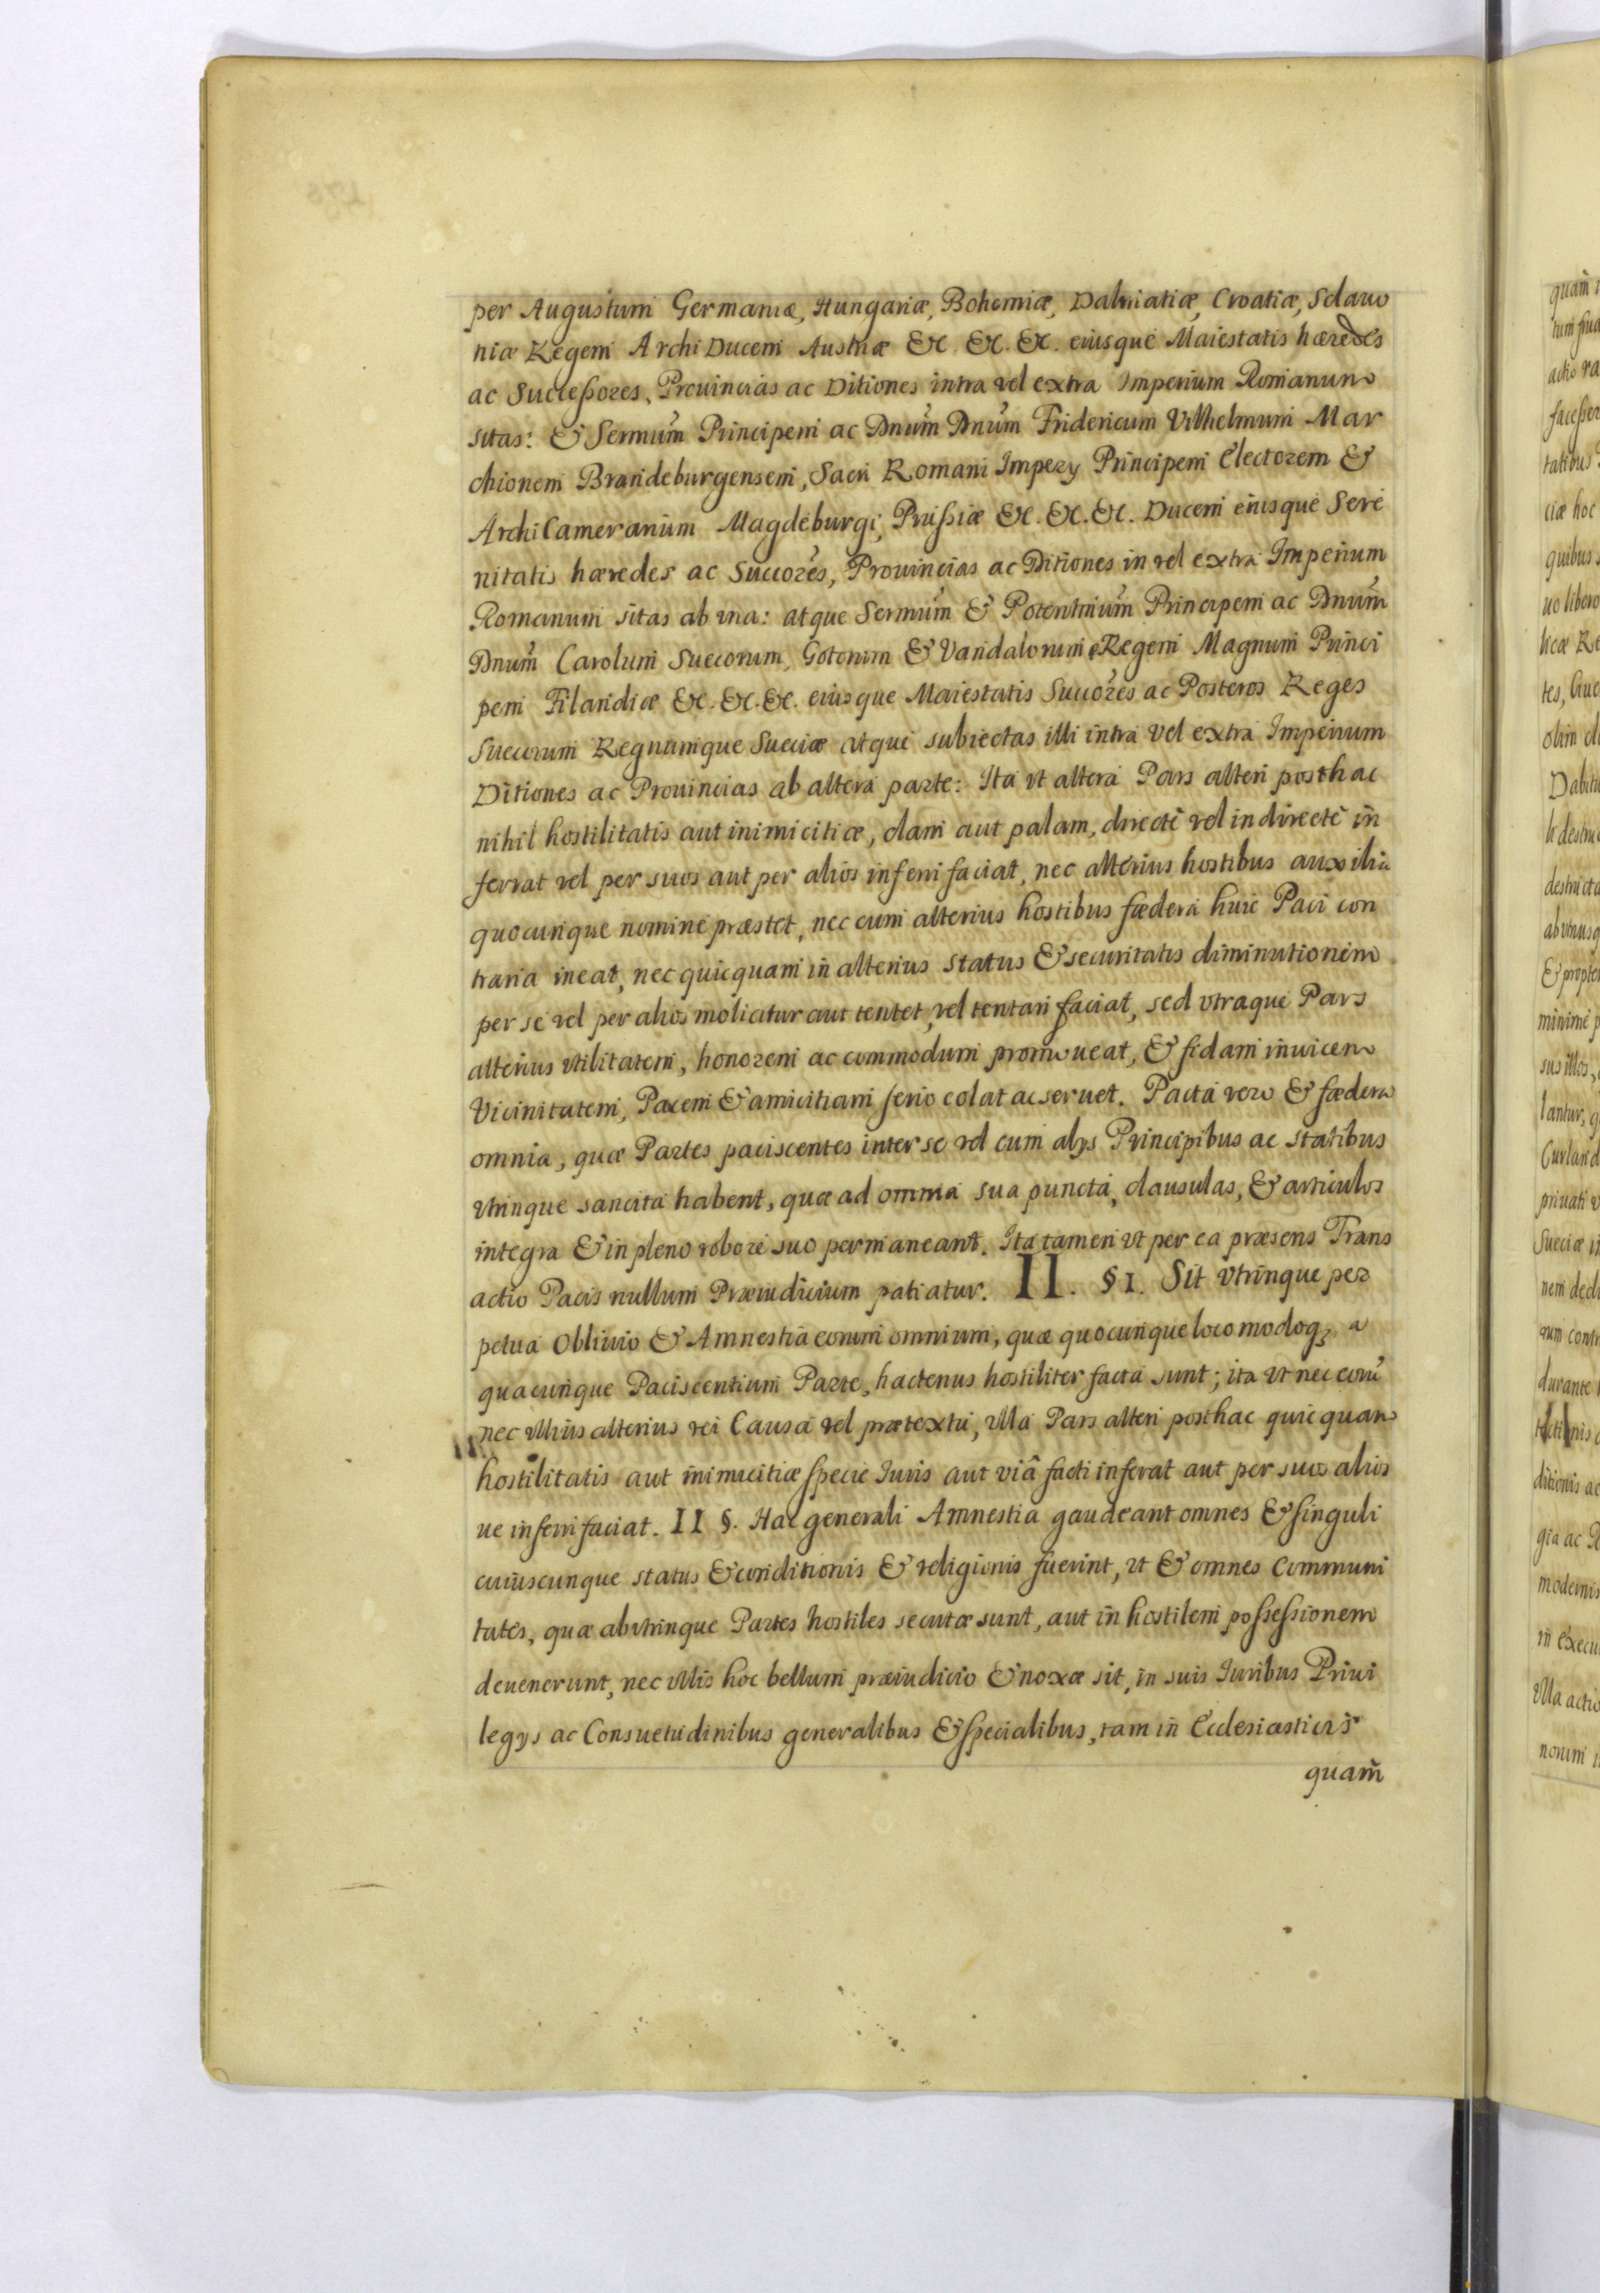 per Augustum Germaniæ, Hungariæ, Bohemiæ, Dalmatiæ, Croatiæ, Sclauo
niæ Regem Archi Ducem Austriæ &c. &c. &c. eiusque Maiestatis hæredes
ac Successores, Prouincias ac Ditiones intra vel extra Imperium Romanum
sitas: & Sermum Principem ac Dnum Dnum Fridericum Vilhelmum Mar
chionem Brandeburgensem, Sacri Romani Impery Principem Electorem &
Archi Camerarium Magdeburgi, Prussiæ &c. &c. &c. Ducem eiusque Sere
nitatis hæredes ac Succores, Prouincias ac Ditiones in vel extra Imperium
Romanum sitas ab vna: atque Sermum & Potentmum Principem ac Dnum
Dnum Carolum Suecorum, Gotorum & Vandalorum Regem Magnum Princi
pem Filandiæ &c. &c. &c. eiusque Maiestatis Succores ac Posteros Reges
Suecorum Regnumque Sueciæ atque subiectas illi intra vel extra Imperium
Ditiones ac Prouincias ab altera parte: Ita vt altera Pars alteri posthac
nihil hostilitatis aut inimicitiæ, clam aut palam, directe vel indirecte in
ferrat vel per suos aut per alios inferri faciat, nec alterius hostibus auxilia
quocunque nomine præstet, nec cum alterius hostibus fœdera huic Paci con
traria ineat, nec quicquam in alterius status & securitatis diminutionem
per se vel per alios molicitur aut tentet, vel tentari faciat, sed vtraque Pars
alterius vtilitatem, honorem ac commodum promoueat, & fidam inuicem
Vicinitatem, Pacem & amicitiam serio colat ac seruet. Pacta vero & fœdera
omnia, quæ Partes paciscentes inter se vel cum alys Principibus ac statibus
vtrinque sancita habent, quæ ad omnia sua puncta, clausulas, & articulos
integra & in pleno robore suo permaneant. Ita tamen vt per ea præsens Trans
actio Pacis nullum Præiudicium patiatur. II. § 1. Sit vtrinque per
petua Obliuio & Amnestia eorum omnium, quæ quocunque loco modoqꝫ a
quacunque Paciscentium Parte, hactenus hostiliter facta sunt; ita vt nec eorũ
nec vllius alterius rei Causa vel prætextu, vlla Pars alteri posthac quicquam
hostilitatis aut inimicitiæ specie Iuris aut viâ facti inferat aut per suos alios
ue inferri faciat. II §. Hac generali Amnestia gaudeant omnes & singuli
cuiuscunque status & conditionis & religionis fuerint, vt & omnes Communi
tates, quæ abvtrinque Partes hostiles secutæ sunt, aut in hostilem possessionem
deuenerunt, nec vllis hoc bellum præiudicio & noxæ sit, in suis Iuribus Priui
legys ac Consuetudinibus generalibus & specialibus, tam in Ecclesiasticis
quam